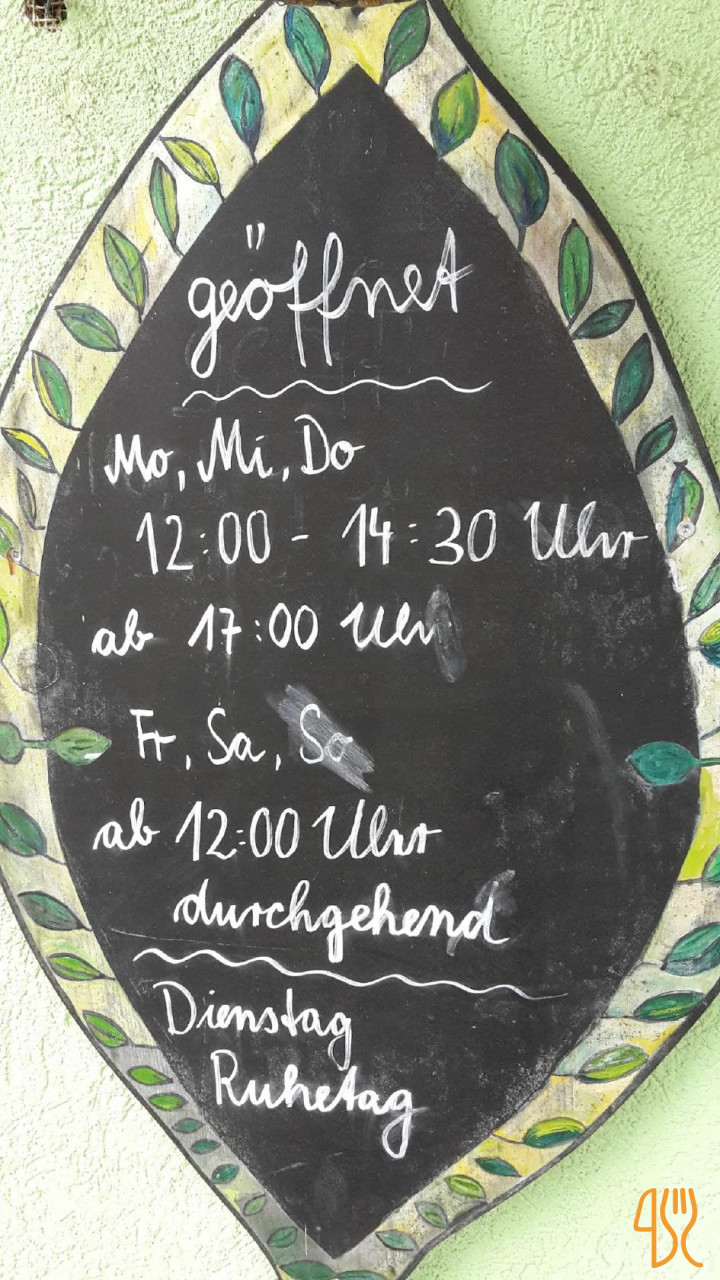 geöffnet
Mo, Mi, Do
12:00 - 14:30 Uhr
ab 17:00 Uhr
Fr, Sa, So
ab 12:00 Uhr
durchgehend
Dienstag
Ruhetag